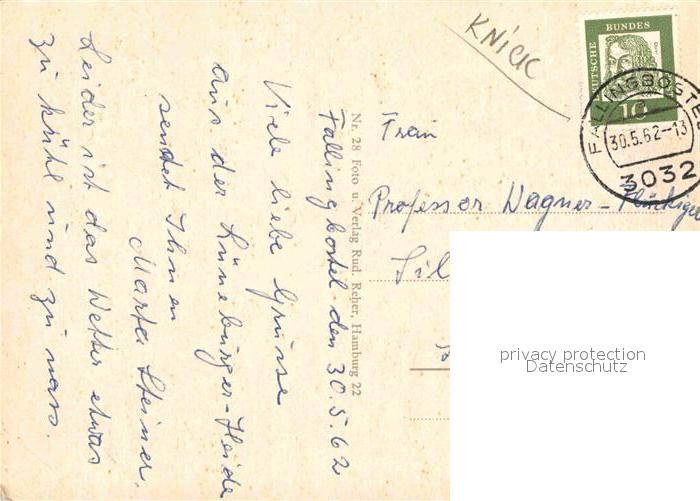 KNICK
DEUTSCHE
BUNDES
10
FALLINGBOSTEL
30.5.62-13
3032
Frau
Professor Wagner-
Sil
privacy protection
Datenschutz
Nr. 28 Foto u. Verlag Rud. Reher, Hamburg 22
Fallingbostel den 30.5.62
Viele liebe Grüsse
aus der Lüneburger-Heide
sendet Ihnen
Marta Steiner.
Leider ist das Wetter etwas
zu kühl und zu nass.